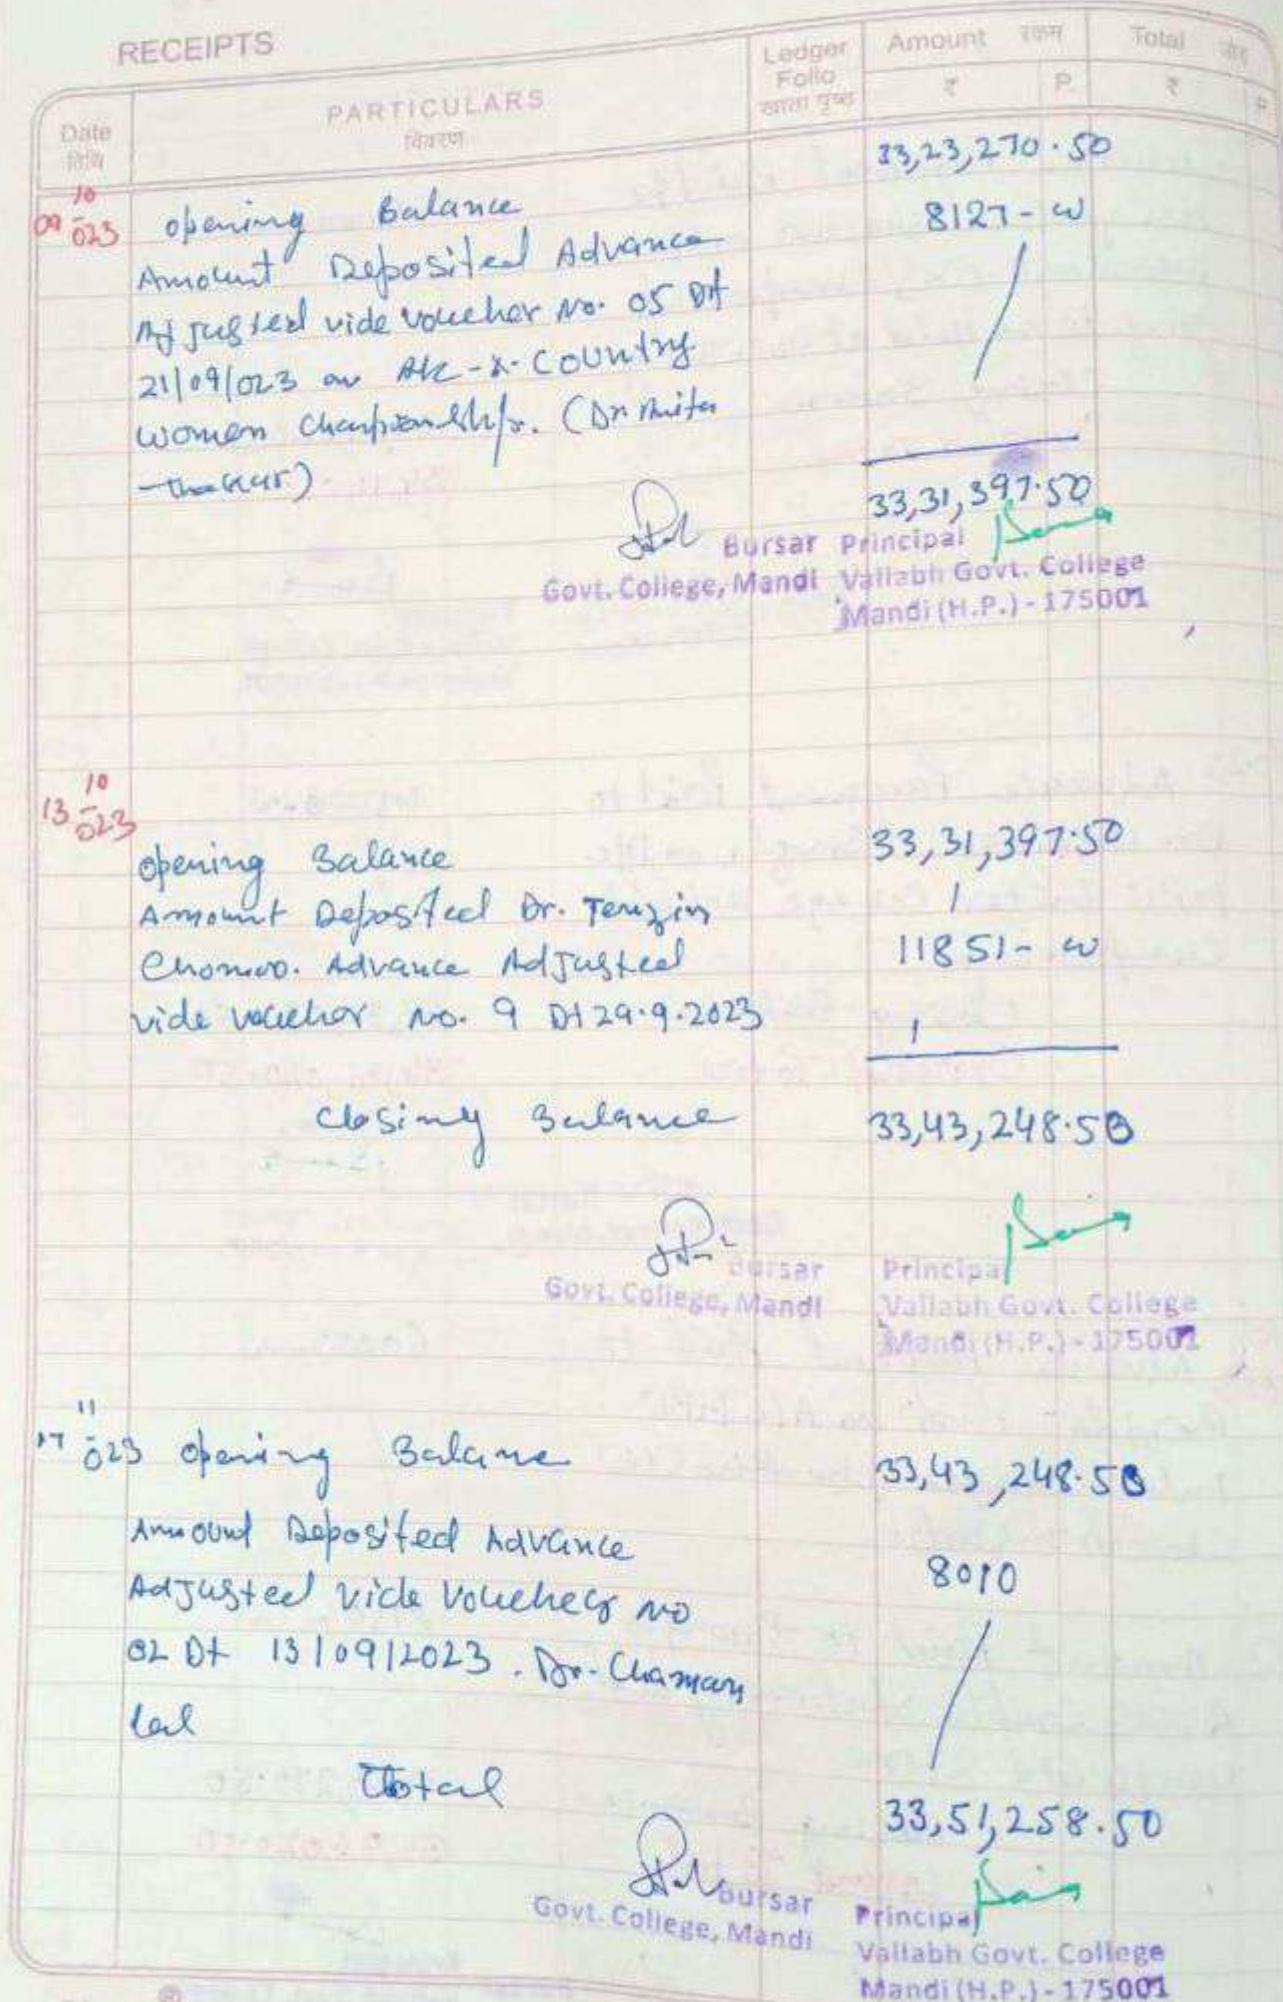 RECEIPTS
Date तिथि
PARTICULARS विवरण
Ledger Folio खाता पृष्ठ
Amount रकम ₹ P.
Total जोड़ ₹ P
33,23,270.50
09 10/023 opening Balance
8127-
Amount Deposited Advance
Adjusted vide voucher No. 05 Dt
21/09/023 on -x-Country
women Championship. (Dr
33,31,397.50
Bursar
Govt. College, Mandi
Principal
Vallabh Govt. College
Mandi (H.P.) - 175001
13 10/023
opening Balance 33,31,397.50
Amount Deposited Dr. Tenzin
Advance Adjusted 11851-
vide voucher no. 9 Dt 29.9.2023
Closing Balance 33,43,248.50
Bursar
Govt. College, Mandi
Principal
Vallabh Govt. College
Mandi (H.P.) - 175001
11/023 opening Balance 33,43,248.50
Amount Deposited Advance
8010
Adjusted vide Voucher no
02 Dt 13/09/2023. Dr. Chaman
Lal
Total
33,51,258.50
Bursar
Govt. College, Mandi
Principal
Vallabh Govt. College
Mandi (H.P.) - 175001